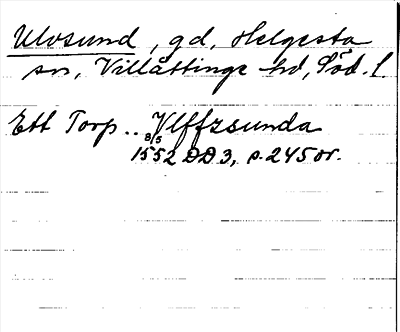 Ulvsund, gd, Helgesta
sn, Villåttinge hd, Söd. l.
Ett Torp.. Vlffzsunda
8/5
1552 DD3, p. 245 or.